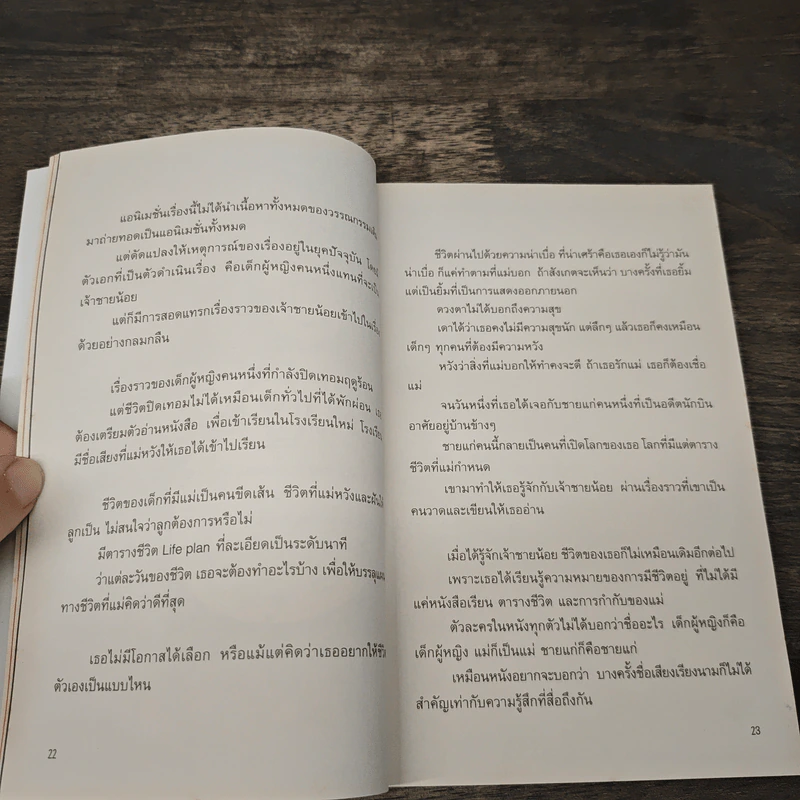 แอนิเมชั่นเรื่องนี้ไม่ได้นำเนื้อหาทั้งหมดของวรรณกรรม
มาถ่ายทอดเป็นแอนิเมชั่นทั้งหมด
แต่ดัดแปลงให้เหตุการณ์ของเรื่องอยู่ในยุคปัจจุบัน
ตัวเอกที่เป็นตัวดำเนินเรื่อง คือเด็กผู้หญิงคนหนึ่งแทนที่จะเป็น
เจ้าชายน้อย
แต่ก็มีการสอดแทรกเรื่องราวของเจ้าชายน้อยเข้าไปใน
ด้วยอย่างกลมกลืน
เรื่องราวของเด็กผู้หญิงคนหนึ่งที่กำลังปิดเทอมฤดูร้อน
แต่ชีวิตปิดเทอมไม่ได้เหมือนเด็กทั่วไปที่ได้พักผ่อน
ต้องเตรียมตัวอ่านหนังสือ เพื่อเข้าเรียนในโรงเรียนใหม่
มีชื่อเสียงที่แม่หวังให้เธอได้เข้าไปเรียน
ชีวิตของเด็กที่มีแม่เป็นคนขีดเส้น ชีวิตที่แม่หวังและ
ลูกเป็น ไม่สนใจว่าลูกต้องการหรือไม่
มีตารางชีวิต Life plan ที่ละเอียดเป็นระดับนาที
ว่าแต่ละวันของชีวิต เธอจะต้องทำอะไรบ้าง เพื่อให้บรรลุ
ทางชีวิตที่แม่คิดว่าดีที่สุด
เธอไม่มีโอกาสได้เลือก หรือแม้แต่คิดว่าเธออยากให้
ตัวเองเป็นแบบไหน
22
ชีวิตผ่านไปด้วยความน่าเบื่อ ที่น่าเศร้าคือเธอเองก็ไม่รู้ว่ามัน
น่าเบื่อ ก็แค่ทำตามที่แม่บอก ถ้าสังเกตจะเห็นว่า บางครั้งที่เธอยิ้ม
แต่เป็นยิ้มที่เป็นการแสดงออกภายนอก
ดวงตาไม่ได้บอกถึงความสุข
เดาได้ว่าเธอคงไม่มีความสุขนัก แต่ลึกๆ แล้วเธอก็คงเหมือน
เด็กๆ ทุกคนที่ต้องมีความหวัง
หวังว่าสิ่งที่แม่บอกให้ทำคงจะดี ถ้าเธอรักแม่ เธอก็ต้องเชื่อ
แม่
จนวันหนึ่งที่เธอได้เจอกับชายแก่คนหนึ่งที่เป็นอดีตนักบิน
อาศัยอยู่บ้านข้างๆ
ชายแก่คนนี้กลายเป็นคนที่เปิดโลกของเธอ โลกที่มีแต่ตาราง
ชีวิตที่แม่กำหนด
เขามาทำให้เธอรู้จักกับเจ้าชายน้อย ผ่านเรื่องราวที่เขาเป็น
คนวาดและเขียนให้เธออ่าน
เมื่อได้รู้จักเจ้าชายน้อย ชีวิตของเธอก็ไม่เหมือนเดิมอีกต่อไป
เพราะเธอได้เรียนรู้ความหมายของการมีชีวิตอยู่ ที่ไม่ได้มี
แค่หนังสือเรียน ตารางชีวิต และการกำกับของแม่
ตัวละครในหนังทุกตัวไม่ได้บอกว่าชื่ออะไร เด็กผู้หญิงก็คือ
เด็กผู้หญิง แม่ก็เป็นแม่ ชายแก่ก็คือชายแก่
เหมือนหนังอยากจะบอกว่า บางครั้งชื่อเสียงเรียงนามก็ไม่ได้
สำคัญเท่ากับความรู้สึกที่สื่อถึงกัน
23